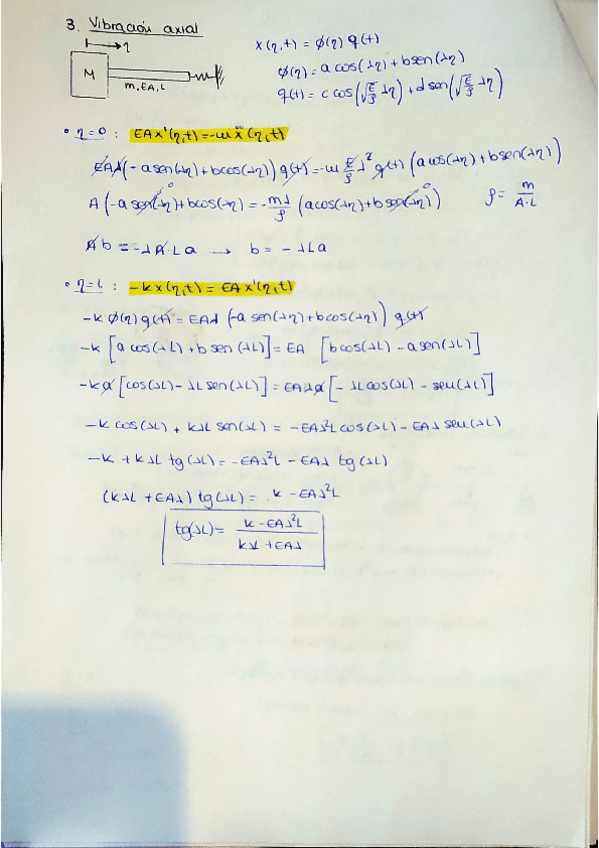 3. Vibración axial
η
M
m, EA, L
x(η,t) = ϕ(η) q(t)
ϕ(η) = a cos(λη) + b sen(λη)
q(t) = c cos(√(E/ρ) λη) + d sen(√(E/ρ) λη)
• η=0 : EA x'(η,t) = -m ẍ(η,t)
EAλ(-a sen(λη) + b cos(λη)) q(t) = -m E/ρ λ² q(t) (a cos(λη) + b sen(λη))
A(-a sen(λη) + b cos(λη) = -mλ/ρ (a cos(λη) + b sen(λη)) ρ = m/(A·L)
0 0
A b = -λ A·L a → b = -λLa
• η=L : -k x(η,t) = EA x'(η,t)
-k ϕ(η) q(t) = EAλ (-a sen(λη) + b cos(λη)) q(t)
-k [a cos(λL) + b sen(λL)] = EA [b cos(λL) - a sen(λL)]
-k a [cos(λL) - λL sen(λL)] = EAλ a [-λL cos(λL) - sen(λL)]
-k cos(λL) + kλL sen(λL) = -EAλ²L cos(λL) - EAλ sen(λL)
-k + kλL tg(λL) = -EAλ²L - EAλ tg(λL)
(kλL + EAλ) tg(λL) = k - EAλ²L
tg(λL) = (k - EAλ²L)/(kλL + EAλ)